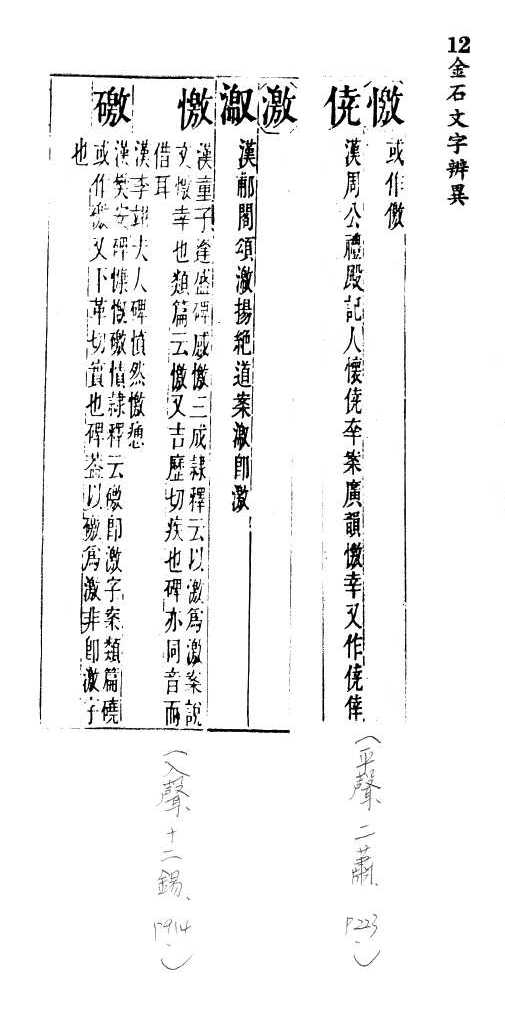 12金石文字辨異
憿
或作儌
僥
漢周公禮殿記人懷僥幸案廣韻憿幸又作僥倖
激
漵
漢郙閣頌漵揚絶道案漵卽激
憿
漢童子逢盛碑感憿三成隸釋云以憿爲激案說
文憿幸也類篇云憿又吉歷切疾也碑亦同音而
借耳
漢李翊夫人碑憤然憿
礉
漢樊安碑慷慨礉憤隸釋云礉卽激字案類篇磽
或作礉又下革切實也碑蓋以礉爲激非卽激字
也
(平聲、二蕭、P223)
(入聲、十二錫、P914)